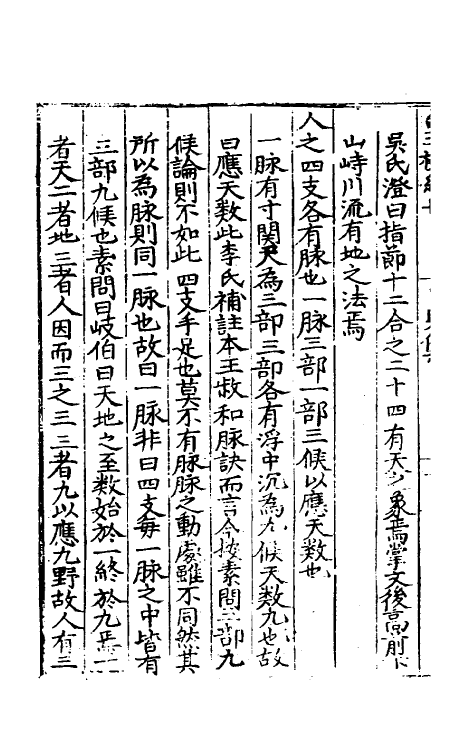 吳氏澄曰指節十二合之二十四有天之象焉掌文後高前下
山峙川流有地之法焉
人之四支各有脉也一脉三部一部三候以應天數也
一脉有寸関尺為三部三部各有浮中沉為九候天數九也故
曰應天數此李氏補註本王叔和脉訣而言今按素問三部九
候論則不如此四支手足也莫不有脉脉之動處雖不同然其
所以為脉則同一脉也故曰一脉非曰四支每一脉之中皆有
三部九候也素問曰岐伯曰天地之至数始於一終於九焉一
者天二者地三者人因而三之三三者九以應九野故人有三